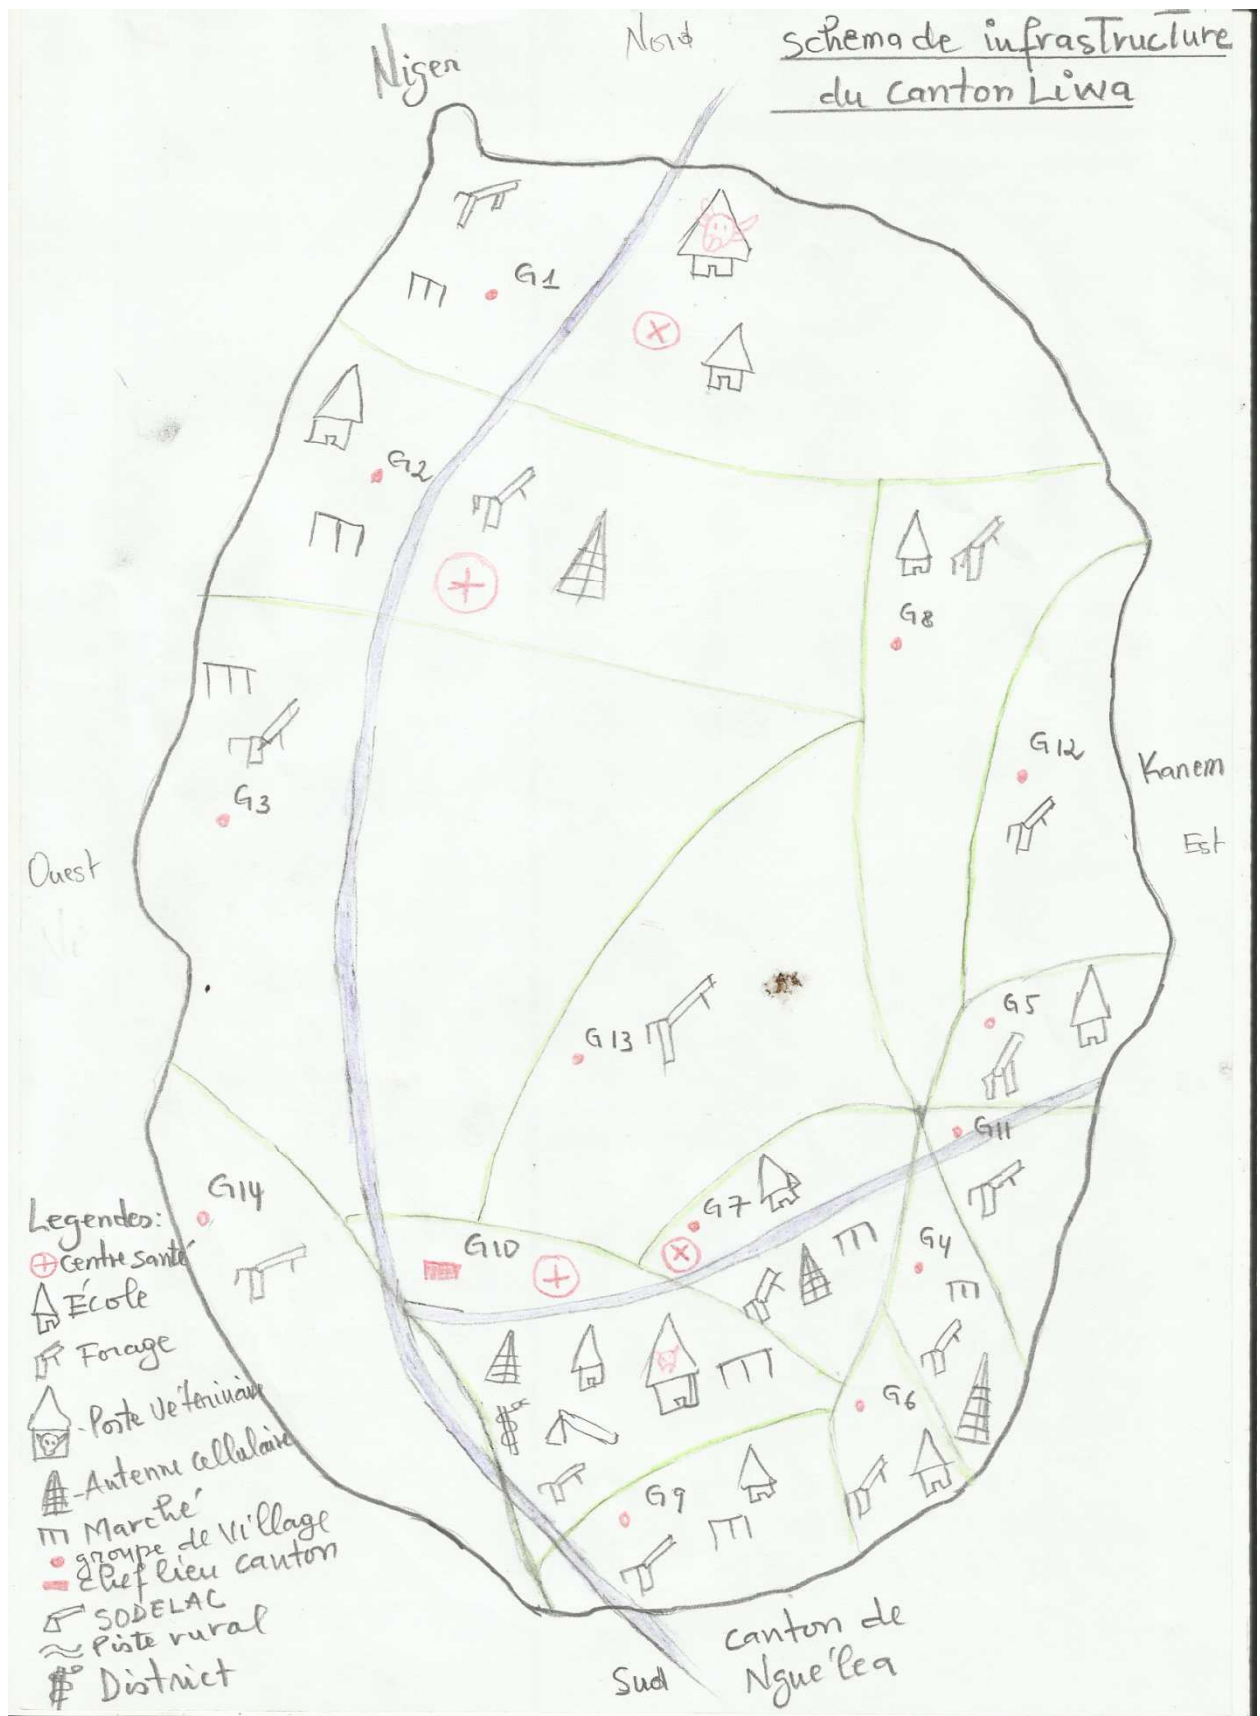 Nord
schema de infrastructure
du canton Liwa
Niger
G1
G2
G8
G12
Kanem
G3
Est
Ouest
G5
G13
G11
G14
G7
G10
G4
G6
G9
Legendes:
centre santé
École
Forage
Poste Véterinaire
Antenne cellulaire
Marché
groupe de village
chef lieu canton
SODELAC
Piste rural
District
canton de
Nguéléa
Sud